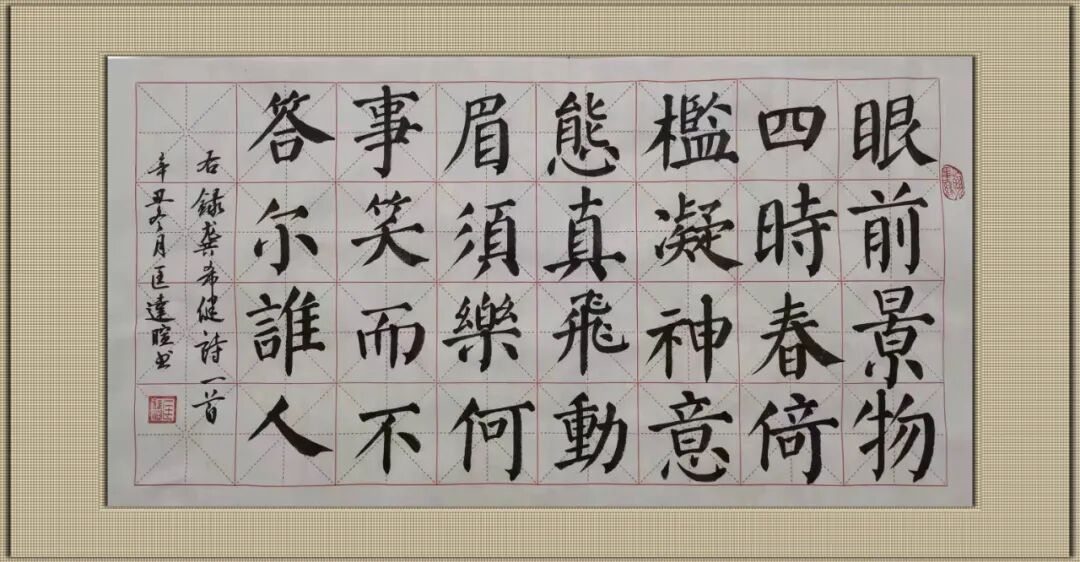 眼前景物
四時春倚
檻凝神意
態真飛動
眉須樂何
事笑而不
答尔誰人
右録龚希健詩一首
辛丑冬月匡達暄书